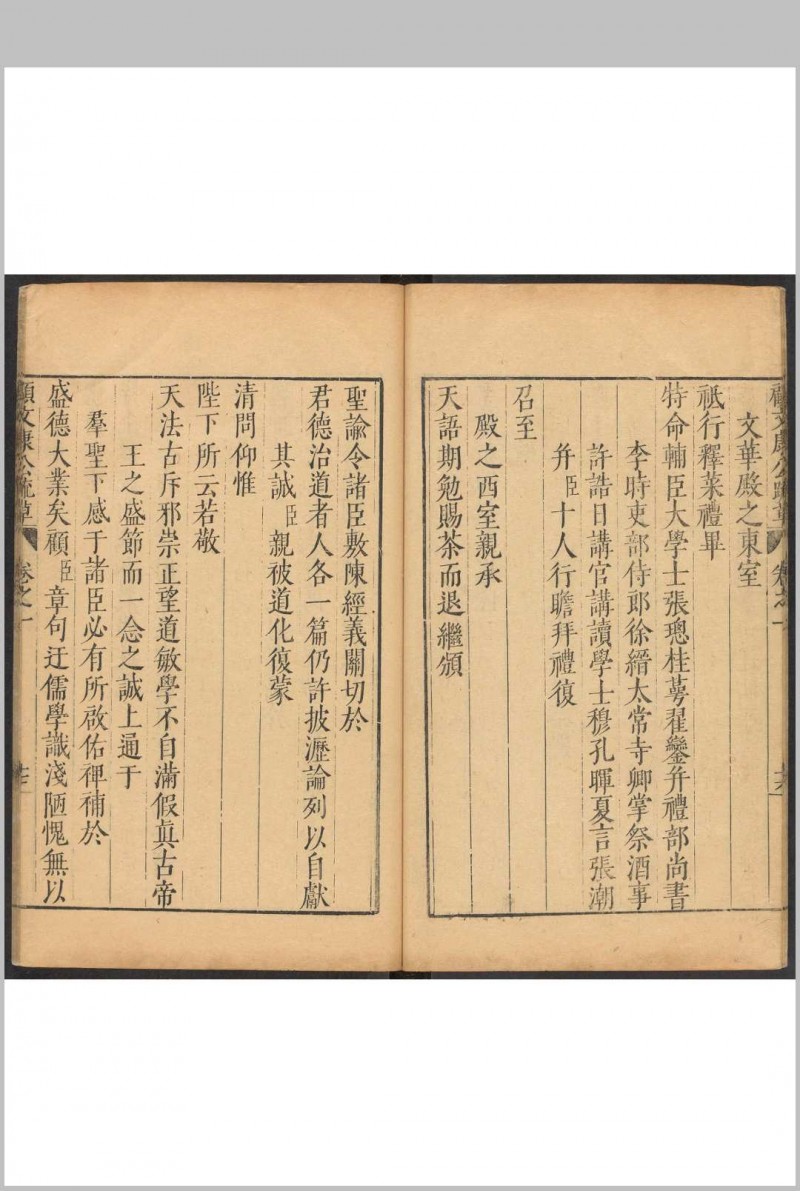 文華殿之東室
祇行釋菜禮畢
特命輔臣大學士張璁桂萼翟鑾并禮部尚書
李時吏部侍郎徐縉太常寺卿掌祭酒事
許誥日講官講讀學士穆孔暉夏言張潮
并臣十人行瞻拜禮復
召至
殿之西室親承
天語期勉賜茶而退繼頒
聖諭令諸臣敷陳經義關切於
君德治道者人各一篇仍許披瀝論列以自獻
其誠臣親被道化復蒙
清問仰惟
陛下所云若敬
天法古斥邪崇正望道敏學不自滿假真古帝
王之盛節而一念之誠上通于
羣聖下感于諸臣必有所啟佑裨補於
盛德大業矣顧臣章句迂儒學識淺陋愧無以
顧文康公疏草 卷之一